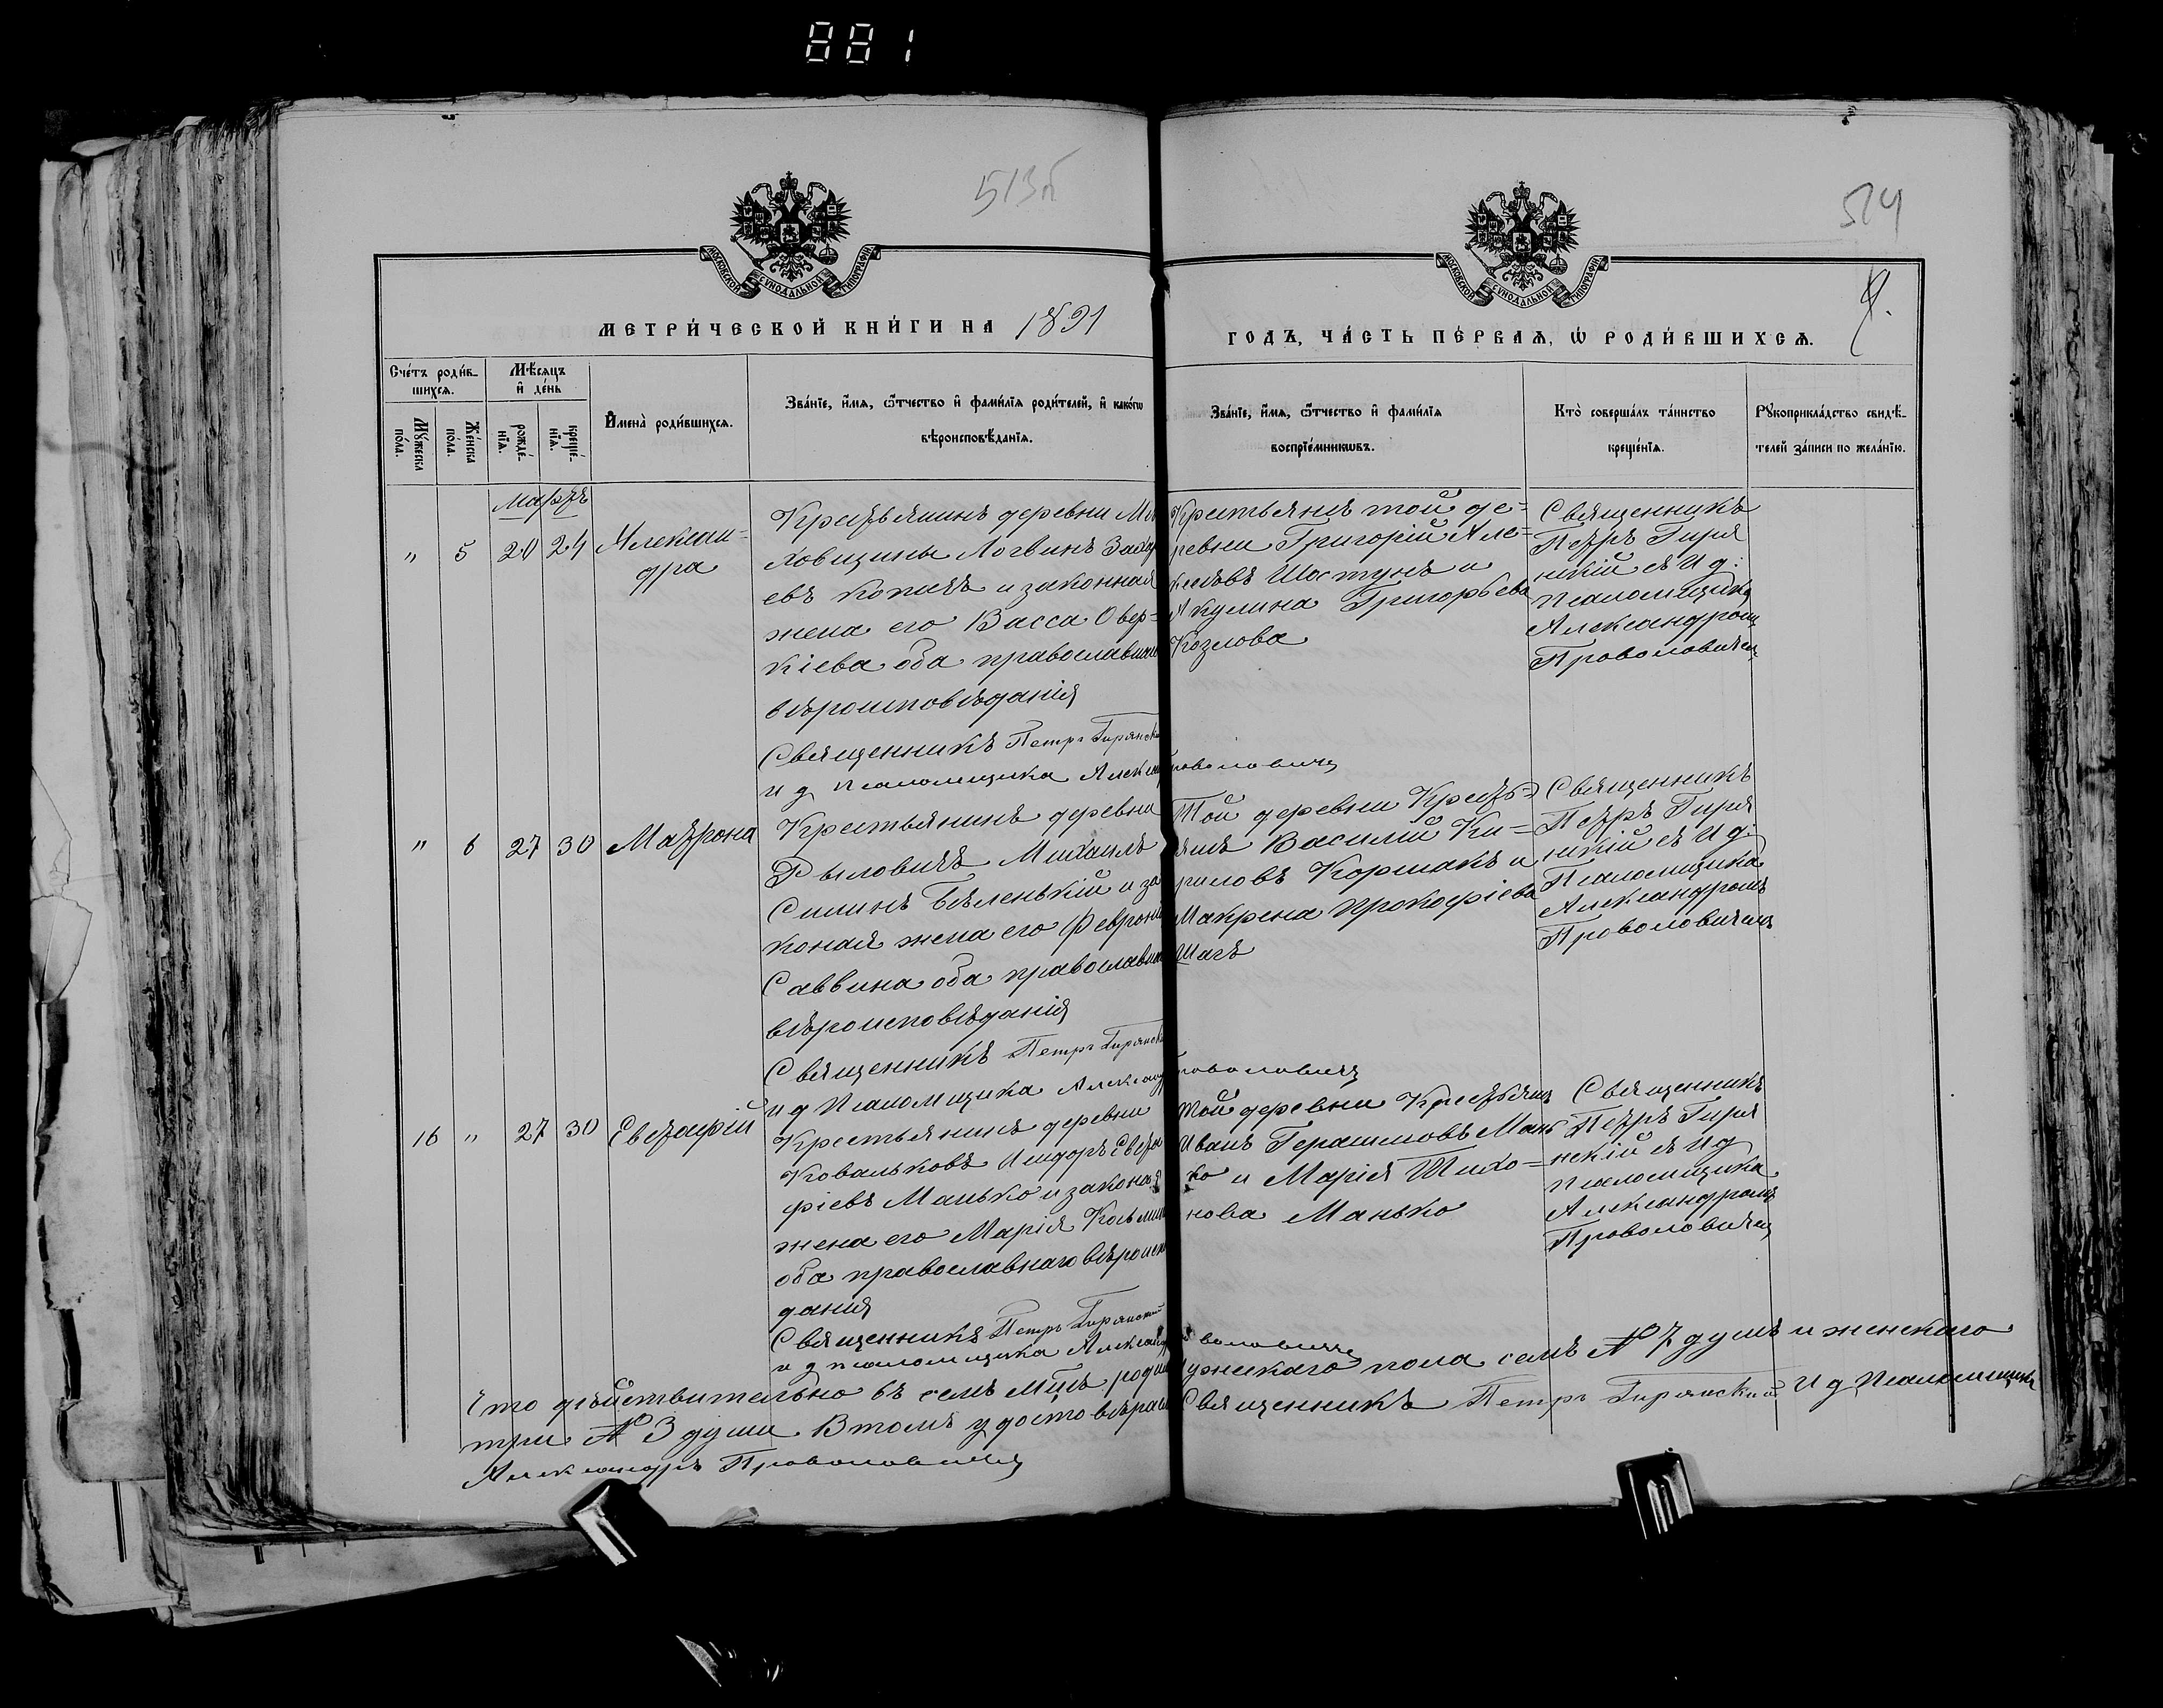 881
513об
514
МОСКОВСКОЙ СѴНОДАЛЬНОЙ ТИПОГРАФІИ
МОСКОВСКОЙ СѴНОДАЛЬНОЙ ТИПОГРАФІИ
МЕТРИ́ЧЕСКОЙ КНИ́ГИ НА 1891
ГОДЪ, ЧА́СТЬ ПЕ́РВАѦ, Ѡ҆ РОДИ́ВШИХСѦ.
Сче́тъ роди́в-
шихсѧ.
Мѣ́сѧцъ
и҆ де́нь
Мꙋ́жеска
по́ла.
Же́нска
по́ла.
рожде́-
нїѧ.
креще́-
нїѧ.
И҆мена̀ роди́вшихсѧ.
Зва́нїе, и҆́мѧ, ѻ҆́тчество и҆ фами́лїѧ роди́телей, и҆ како́гѡ
вѣроисповѣ́данїѧ.
Зва́нїе, и҆́мѧ, ѻ҆́тчество и҆ фами́лїѧ
воспрїе́мникѡвъ.
Кто̀ соверша́лъ та́инство
креще́нїѧ.
Рꙋкоприкла́дство свидѣ́-
телей за́писи по жела́нїю.
Мартъ
" 5 20 24 Алексан-
дра
Крестьянинъ деревни Ми
ховщины Логвинъ Заха
евъ Копачъ и законная
жена его Васса Овер-
кіева оба православнаго
вѣроисповѣданія
Священникъ Петръ Гирянскі
и д псаломщика Алексан
Крестьянъ той де-
ревни Григорій Але-
ксѣевъ Шостунъ и
Акулина Григорьева
Козлова
роволовичъ
Священникъ
Петръ Гиря
нскій съ И д:
псаломщика
Александромъ
Проволовичемъ
" 6 27 30 Матрона
Крестьянинъ деревни
Рыловичъ Михаилъ
Силинъ Бѣленькій и за
коная жена его Феврони
Саввина оба православна
вѣроисповѣданія
Священникъ Петръ Гирянскі
и д Псаломщика Александ
Той деревни Кресть-
янъ Василій Ки-
риловъ Коршакъ и
Макрена Прокофіева
Шагъ
роволовичъ
Священникъ
Петръ Гиря
нскій съ И д:
Псаломщика
Александромъ
Проволовичемъ
16 " 27 30 Евстафій
Крестьянинъ деревни
Ковальковъ Исидоръ Евста
фіевъ Манько и законая
жена его Марія Косьмин
оба православнаго вѣроиспо
данія
Священникъ Петръ Гирянскій
и д псаломщика Александ
Той деревни Крестьянъ
Иванъ Герасимовъ Мань
ко и Марія Тихо-
нова Манько
воловичъ
Священникъ
Петръ Гиря
нскій съ И д
псаломщика
Александромъ
Проволовичемъ
Что дѣйствительно въ семъ мцѣ роди мужскаго пола семь № 7 душъ и женскаго
три № 3 души. В томъ удостовѣряем Священникъ Петръ Гирянскій И д Псаломщика
Александръ Проволовичъ